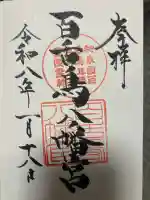 奉拝
百舌鳥八幡宮
令和八年一月十八日